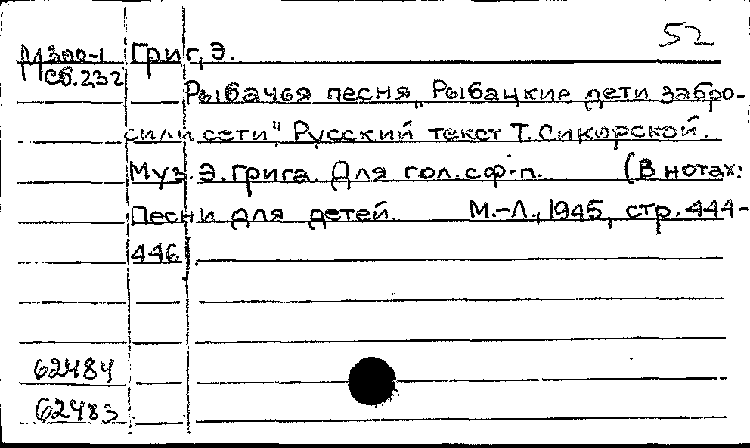 52
М300-1 Григ, Э.
Сб.232
Рыбачья песня „Рыбацкие дети забро-
сили сети". Русский текст Т. Сикорской.
Муз. Э. Грига. Для гол. с ф-п. (В нотах:
Песни для детей. М.-Л., 1945, стр. 444-
446).
62484
62483